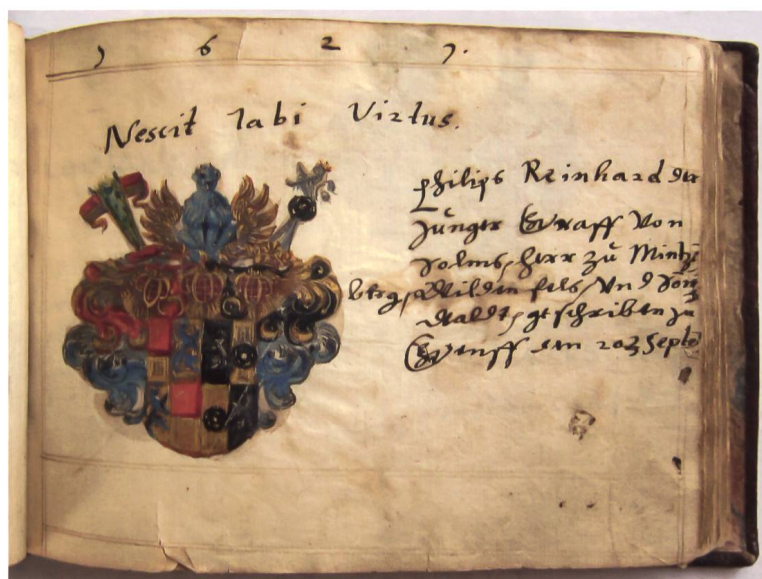 1 6 2 7.
Nescit labi Virtus.
Philips Reinhard der
Jünger Graff Von
Solms, Herr zu Mintz
berg, Wilden fels, Vnd Son
waldt, geschriben zu
Genff den 20 Septe